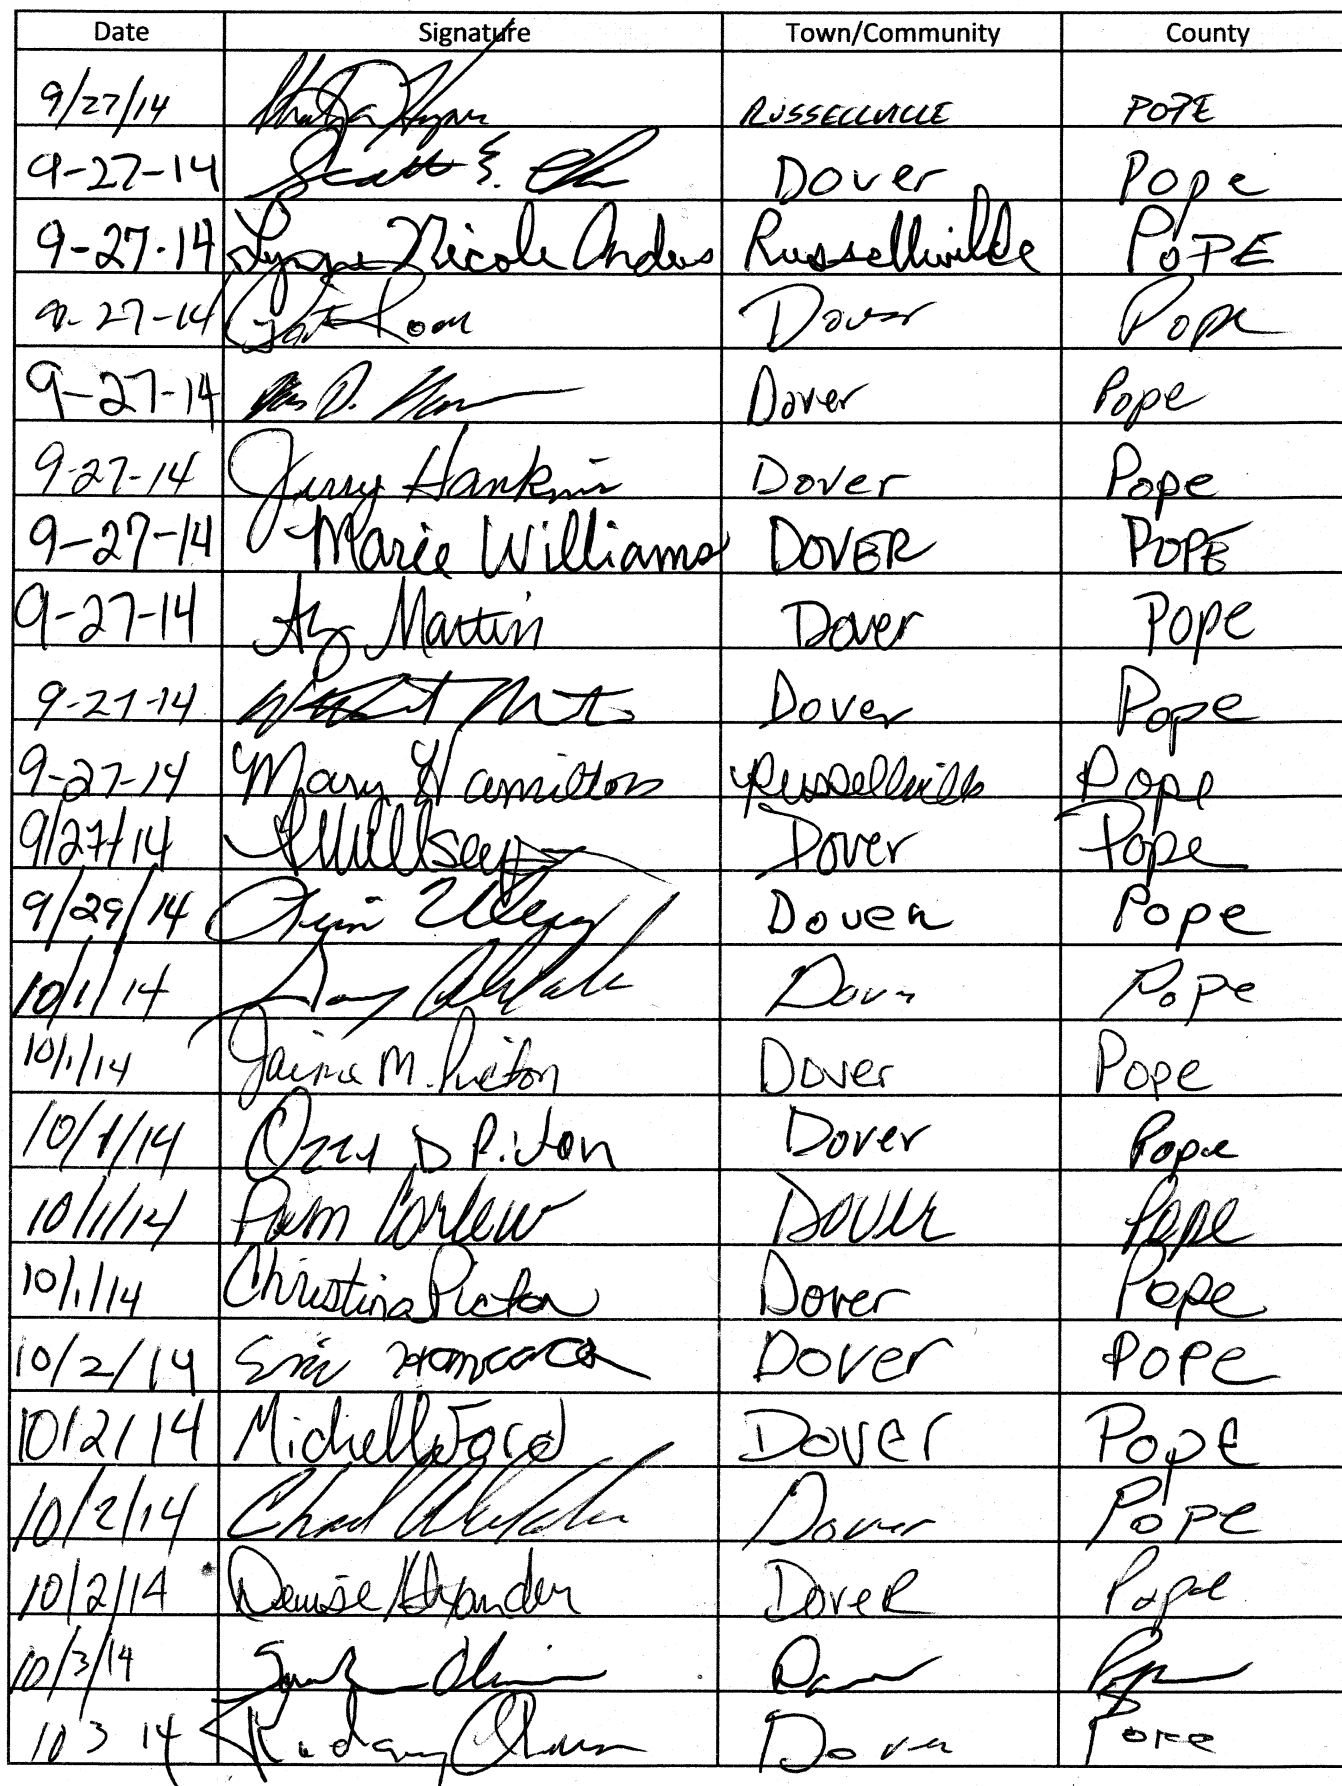 Date Signature Town/Community County
9/27/14 RUSSELLVILLE POPE
9-27-14 Scott E. Dover Pope
9-27-14 Lynne Nicole Anders Russellville POPE
9-27-14 Pat Dover Pope
9-27-14 D. Dover Pope
9-27-14 Jerry Hankins Dover Pope
9-27-14 Marie Williams DOVER POPE
9-27-14 Martin Dover Pope
9-27-14 Dover Pope
9-27-14 Mary Hamilton Russellville Pope
9/27/14 Dover Pope
9/29/14 Dover Pope
10/1/14 Dover Pope
10/1/14 Jaime M. Picton Dover Pope
10/1/14 Ozzy D Picton Dover Pope
10/1/14 Pam Corlew Dover Pope
10/1/14 Christina Picton Dover Pope
10/2/14 Eric Hancock Dover POPE
10/2/14 Michelle Ford Dover Pope
10/2/14 Chad Dover Pope
10/2/14 Denise Alexander Dover Pope
10/3/14
10 3 14 Rodney Dover Pope